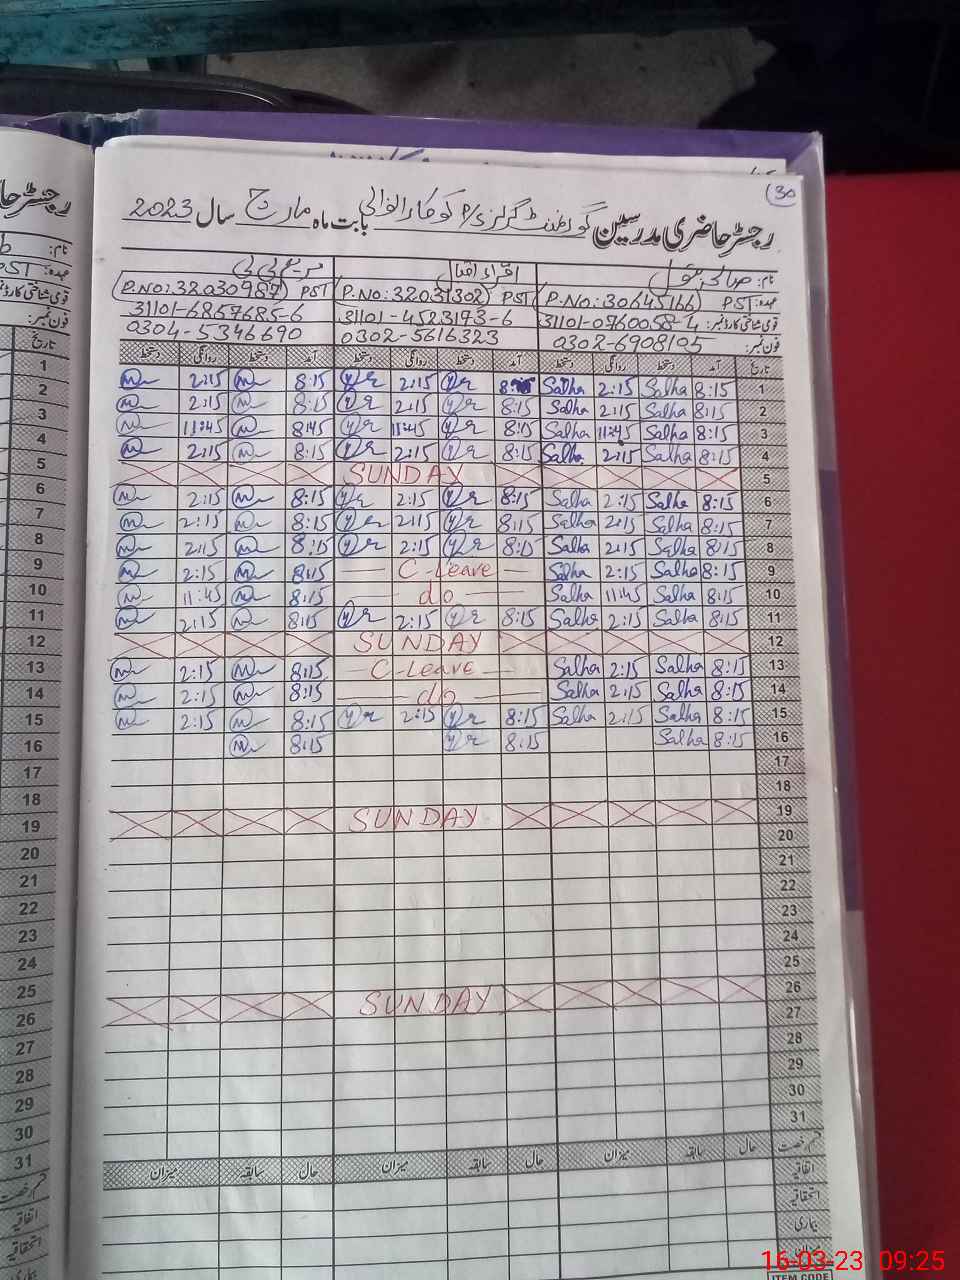 30
رجسٹر حاضری مدرسین گورنمنٹ گرلز P/S بابت ماہ مارچ سال 2023
نام: اقراء اقبال
عہدہ: PST P.NO: 30645166 PST P.NO: 32031302 PST P.NO: 32030987
قومی شناختی کارڈ نمبر: 31101-0760058-4 31101-4523173-6 31101-6867685-6
فون نمبر: 0302-6908105 0302-5616323 0304-5346690
تاریخ آمد دستخط روانگی دستخط آمد دستخط روانگی دستخط آمد دستخط روانگی دستخط
1 8:15 Salha 2:15 Salha 2:15 8:15 2:15
2 8:15 Salha 2:15 Salha 8:15 2:15 8:15 2:15
3 8:15 Salha 11:45 Salha 8:15 11:45 8:45 11:45
4 8:15 Salha 2:15 Salha 8:15 2:15 8:15 2:15
5 SUNDAY
6 8:15 Salha 2:15 Salha 8:15 2:15 8:15 2:15
7 8:15 Salha 2:15 Salha 8:15 2:15 8:15 2:15
8 8:15 Salha 2:15 Salha 8:15 2:15 8:15 2:15
9 8:15 Salha 2:15 Salha C-Leave 8:15 2:15
10 8:15 Salha 11:45 Salha do 8:15 11:45
11 8:15 Salha 2:15 Salha 8:15 2:15 8:15 2:15
12 SUNDAY
13 8:15 Salha 2:15 Salha C-Leave 8:15 2:15
14 8:15 Salha 2:15 Salha do 8:15 2:15
15 8:15 Salha 2:15 Salha 8:15 2:15 8:15 2:15
16 8:15 Salha 8:15 8:15
17
18
19 SUNDAY
20
21
22
23
24
25
26 SUNDAY
27
28
29
30
31
قسم رخصت حال سابقہ میزان حال سابقہ میزان حال سابقہ میزان
اتفاقیہ
استحقاقیہ
بیماری
ITEM CODE
رجسٹر حا
نام:
عہدہ: PST
قومی شناختی کارڈ نمبر
فون نمبر:
تاریخ
1
2
3
4
5
6
7
8
9
10
11
12
13
14
15
16
17
18
19
20
21
22
23
24
25
26
27
28
29
30
31
قسم رخصت
اتفاقیہ
استحقاقیہ
بیماری
16-03-23 09:25